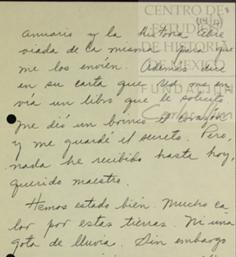 anuario y la historia abre
viada de la misma para que
me los envíen. Además dice
en su carta que Ud. me en
vía un libro que le
me dió un
y me guardé el secreto. Pero,
nada he recibido hasta hoy,
querido maestro.
Hemos estado bien. Mucho ca
lor por estas tierras. Ni una
gota de lluvia. Sin embargo
CENTRO DE
ESTUDIOS
DE HISTORIA
DE MEXICO
FUNDACIÓN